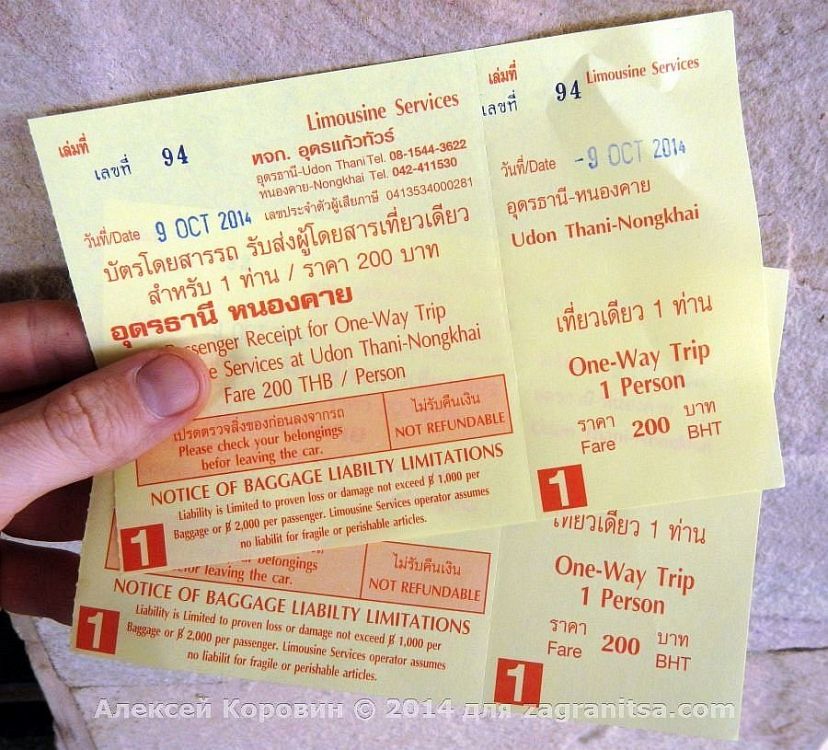 เล่มที่
เลขที่ 94
Limousine Services
หจก. อุดรแก้วทัวร์
อุดรธานี-Udon Thani Tel. 08-1544-3622
หนองคาย-Nongkhai Tel. 042-411530
เลขประจำตัวผู้เสียภาษี 0413534000281
วันที่/Date 9 OCT 2014
บัตรโดยสารรถ รับส่งผู้โดยสารเที่ยวเดียว
สำหรับ 1 ท่าน / ราคา 200 บาท
อุดรธานี หนองคาย
Receipt for One-Way Trip
Services at Udon Thani-Nongkhai
Fare 200 THB / Person
โปรดตรวจสิ่งของก่อนลงจากรถ
Please check your belongings
befor leaving the car.
ไม่รับคืนเงิน
NOT REFUNDABLE
NOTICE OF BAGGAGE LIABILTY LIMITATIONS
Liability is Limited to proven loss or damage not exceed ฿ 1,000 per
Baggage or ฿ 2,000 per passenger. Limousine Services operator assumes
no liabilit for fragile or perishable articles.
1
เล่มที่
เลขที่ 94
Limousine Services
วันที่/Date -9 OCT 2014
อุดรธานี-หนองคาย
Udon Thani-Nongkhai
เที่ยวเดียว 1 ท่าน
One-Way Trip
1 Person
ราคา 200 บาท
Fare BHT
1
belongings
leaving the car.
ไม่รับคืนเงิน
NOT REFUNDABLE
NOTICE OF BAGGAGE LIABILTY LIMITATIONS
Liability is Limited to proven loss or damage not exceed ฿ 1,000 per
Baggage or ฿ 2,000 per passenger. Limousine Services operator assumes
no liabilit for fragile or perishable articles.
1
เที่ยวเดียว 1 ท่าน
One-Way Trip
1 Person
ราคา 200 บาท
Fare BHT
1
Алексей Коровин © 2014 для zagranitsa.com